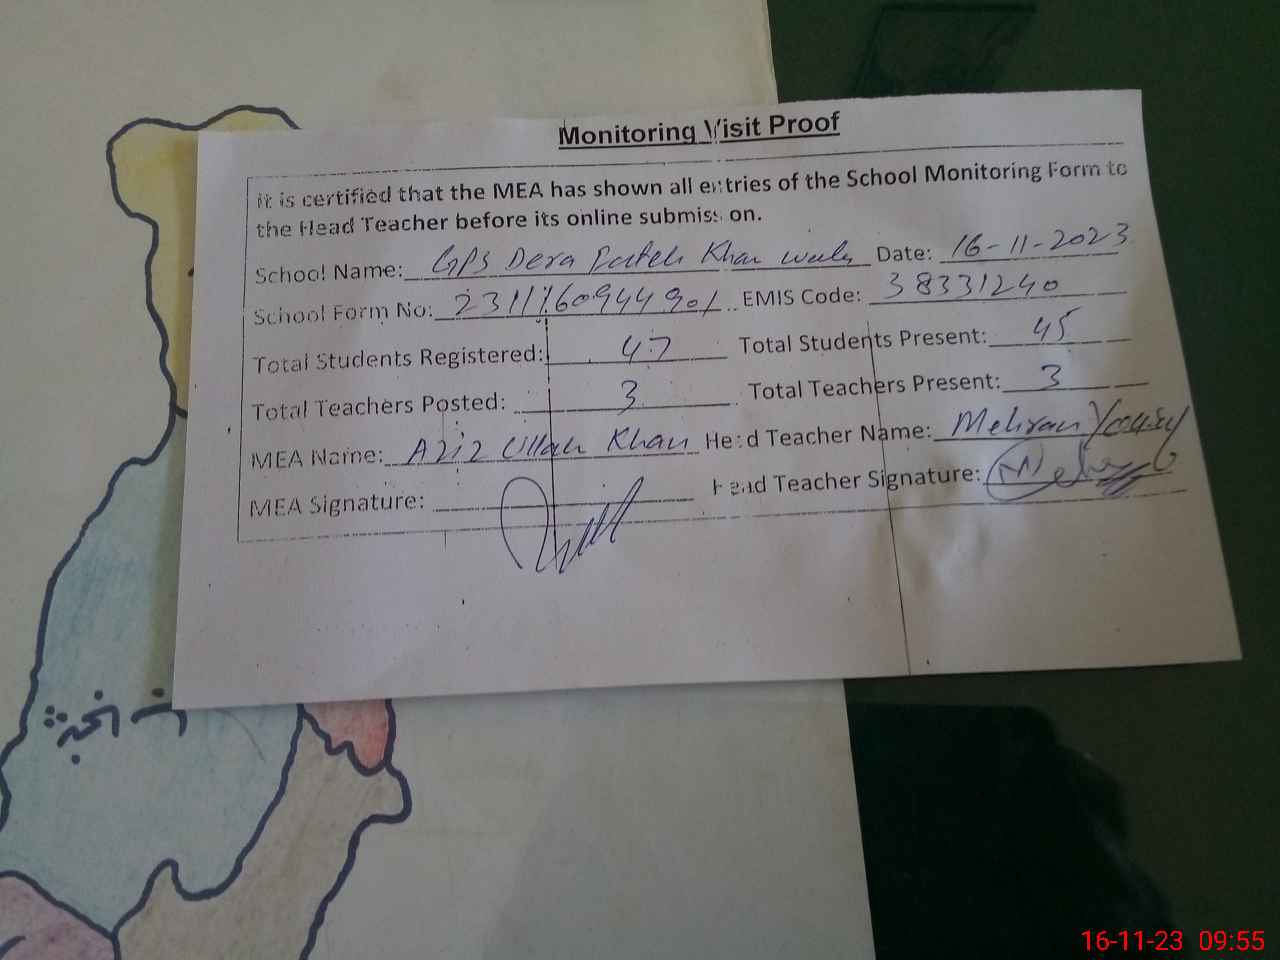 Monitoring Visit Proof
It is certified that the MEA has shown all entries of the School Monitoring Form to
the Head Teacher before its online submission.
School Name: GPS Dera Fateh Khan wala Date: 16-11-2023
School Form No: EMIS Code: 38331240
Total Students Registered: 47 Total Students Present: 45
Total Teachers Posted: 3 Total Teachers Present: 3
MEA Name: Aziz Ullah Khan Head Teacher Name: Mehran
MEA Signature: Head Teacher Signature:
16-11-23 09:55